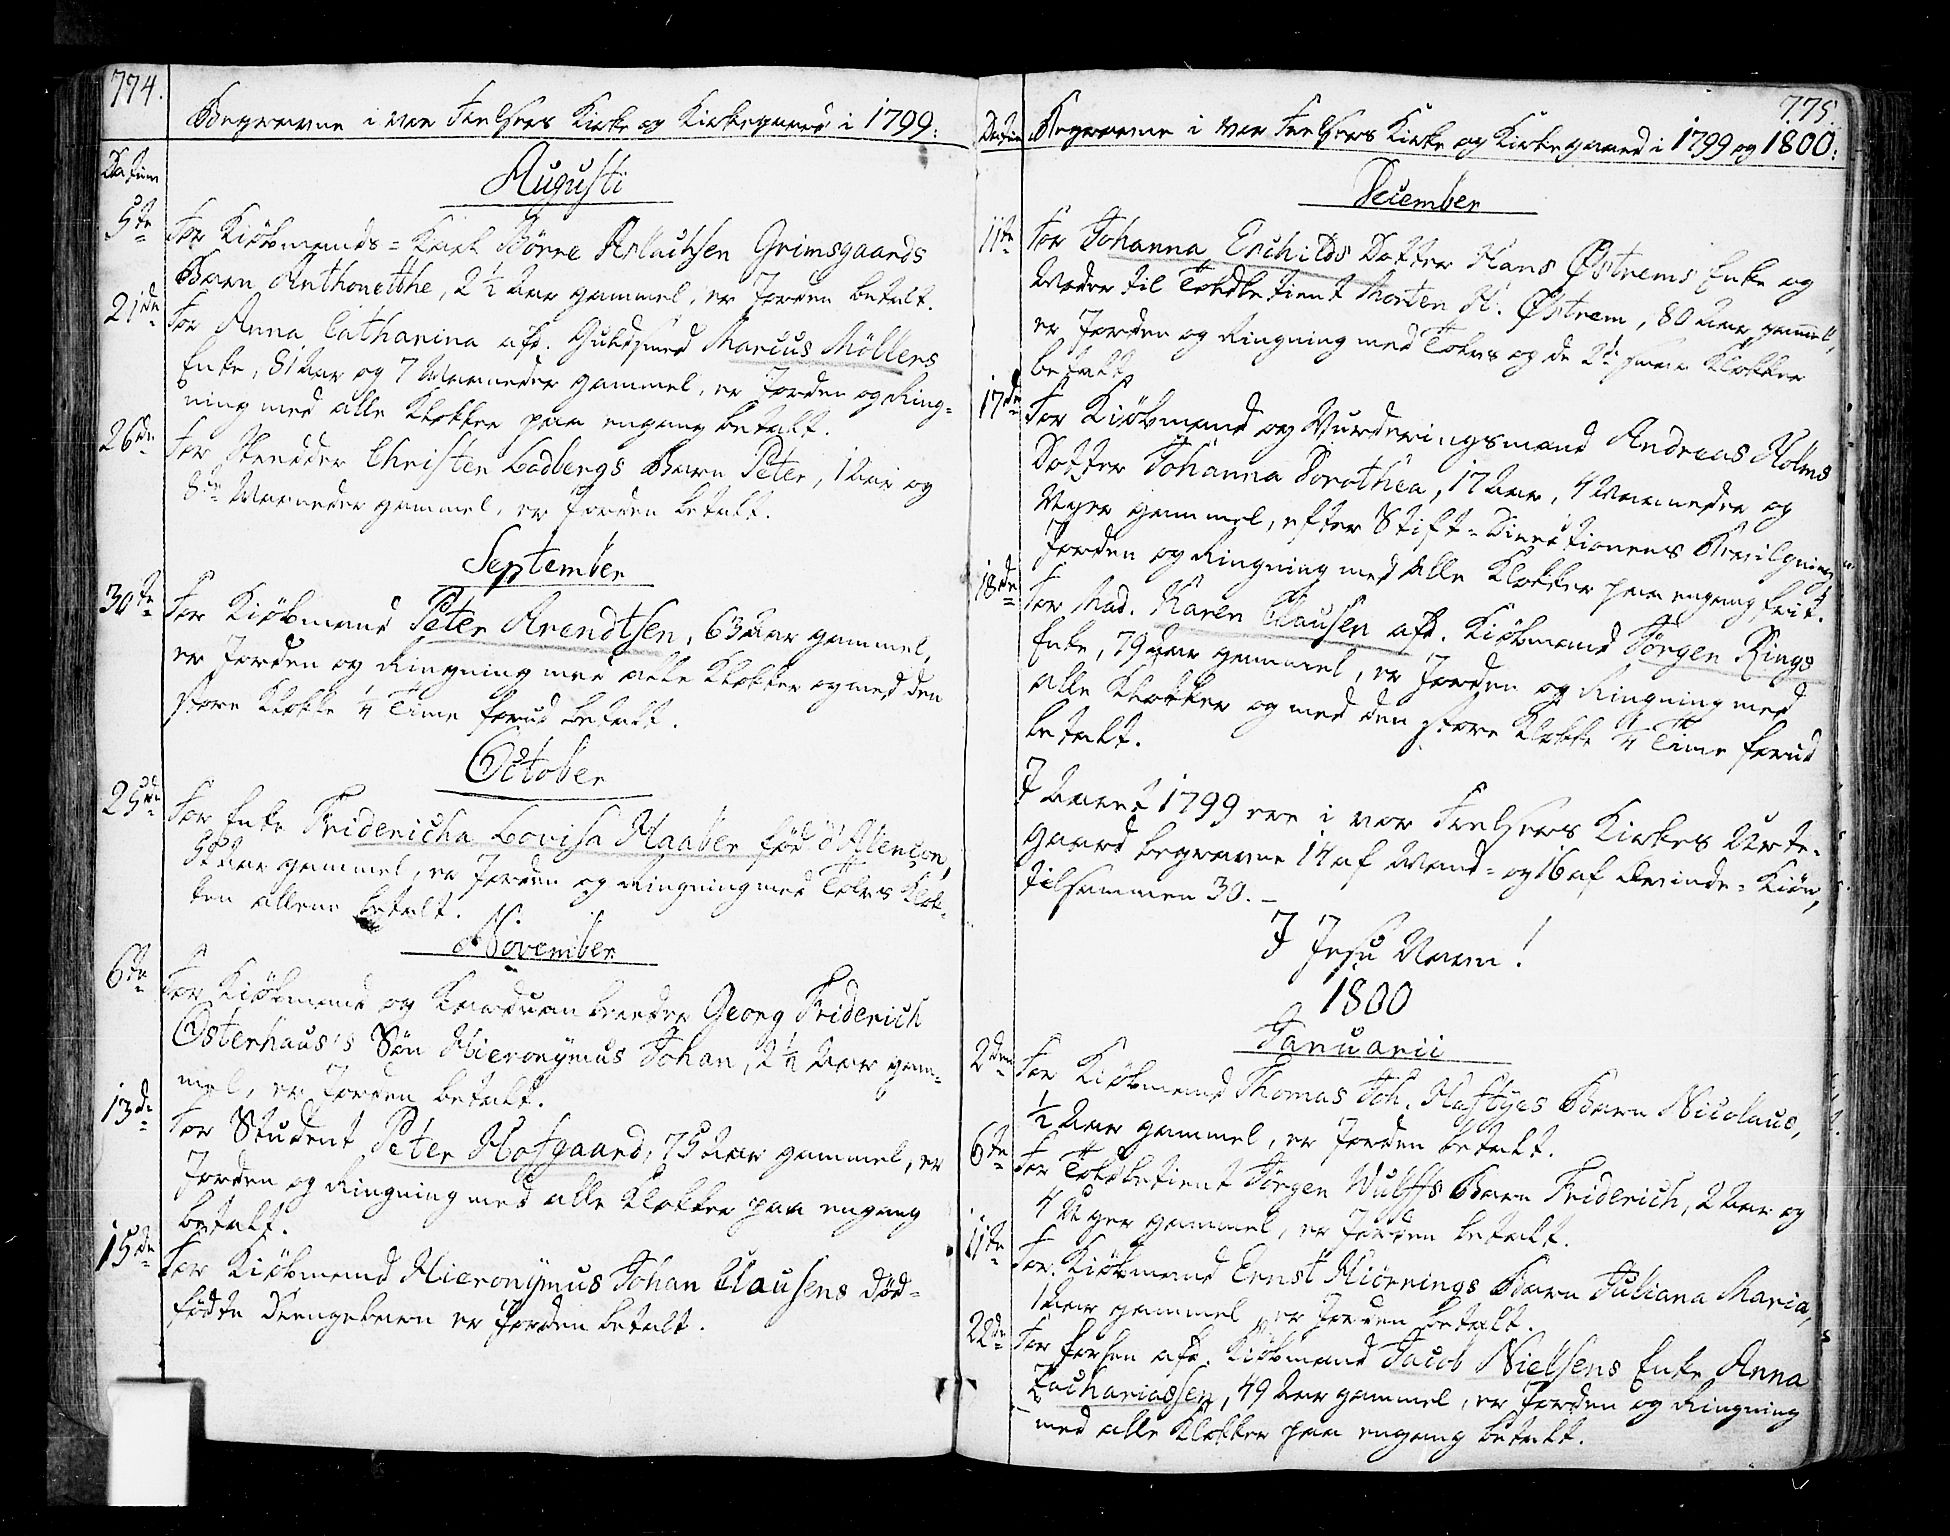 774.
Begravne i vor Frelsers Kirke og Kirkegaard i 1799.
Datum
Augusti
5te For Kiøbmands-Karl Börre Aslachsen Grimsgaards
Barn Anthonetthe, 2½ Aar gammel, er Jorden betalt.
21de For Anna Catharina afd. Guldsmed Marcus Möllers
Enke, 81 Aar og 7 Maaneder gammel, er Jorden og Ring-
ning med alle Klokker paa engang betalt.
26de For Skrædder Christen Lodbergs Barn Peter, 1 Aar og
8te Maaneder gammel, er Jorden betalt.
September
30te For Kiøbmand Peter Arendtsen, 63 Aar gammel,
er Jorden og Ringning med alle Klokker og med den
store Klokke ¼ Time forud betalt.
October
25de For Enke Fridericha Lovisa Haaber fød d'Alencon,
Aar gammel, er Jorden og Ringning med Tolvs Klok-
ken allene betalt.
November
6te For Kiøbmand og Karduanbereder Georg Friderich
Osterhaus's Søn Hieronymus Johan, 2½ Aar gam-
mel, er Jorden betalt.
13de For Student Peter Hofgaard, 75 Aar gammel, er
Jorden og Ringning med alle Klokker paa engang
betalt.
15de For Kiøbmand Hieronymus Johan Clausens død-
fødte Drengebarn er Jorden betalt.
775.
Datum Begravne i vor Frelsers Kirke og Kirkegaard i 1799 og 1800.
December
11te For Johanna Erchilds Datter Hans Østrems Enke og
Moder til Toldbetient Morten H. Østrem, 80 Aar gammel,
er Jorden og Ringning med Tolvs og de 2de smaa Klokker
betalt.
17de For Kiøbmand og Vurderingsmand Andreas Holms
Datter Johanna Dorothea, 17 Aar, 4 Maaneder og
Uger gammel, efter Stift-Directionens Bevilgning
Jorden og Ringning med alle Klokker paa engang frit.
18de For Mad. Karen Clausen afd. Kiøbmand Jörgen Rings
Enke, 79 Aar gammel, er Jorden og Ringning med
alle Klokker og med den store Klokke ¼ Time forud
betalt.
I Aaret 1799 ere i vor Frelsers Kirkes Urte-
gaard begravne 14 af Mand- og 16 af Qvinde-Kiøn,
tilsammen 30.
I Jesu Navn!
1800
Januarii
2den For Kiøbmand Thomas Joh. Heftyes Barn Nicolaus,
½ Aar gammel, er Jorden betalt.
6te For Toldbetient Jörgen Wulffs Barn Friderich, 2 Aar og
4 Uger gammel, er Jorden betalt.
11te For Kiøbmand Ernst Hiørnings Barn Juliana Maria,
1 Aar gammel, er Jorden betalt.
22de For forhen afd. Kiøbmand Jacob Nielsens Enke Anna
Zachariassen, 49 Aar gammel, er Jorden og Ringning
med alle Klokker paa engang betalt.